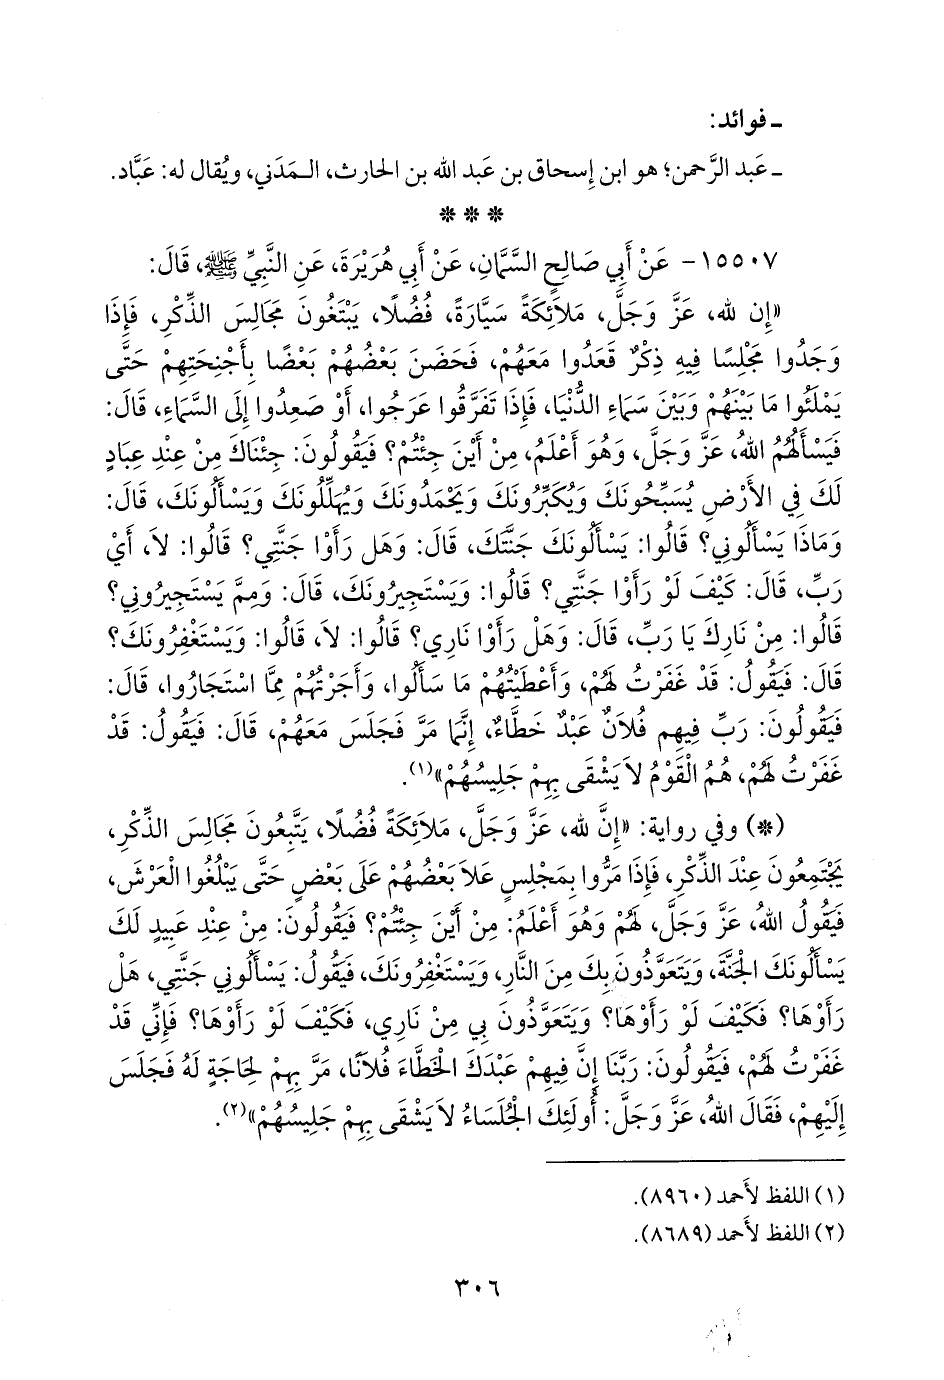 ـ فوائد:
ـ عَبد الرَّحمن؛ هو ابن إِسحاق بن عَبد الله بن الحارث، الـمَدَني، ويُقال له: عَبَّاد.
* * *
١٥٥٠٧ - عَنْ أَبِي صَالِحٍ السَّمَّانِ، عَنْ أَبِي هُرَيْرَةَ، عَنِ النَّبِيِّ ﷺ، قَالَ:
«إِن لله، عَزَّ وَجَلَّ، مَلاَئِكَةً سَيَّارَةً، فُضُلًا، يَبْتَغُونَ مَجَالِسَ الذِّكْرِ، فَإِذَا
وَجَدُوا مَجْلِسًا فِيهِ ذِكْرٌ قَعَدُوا مَعَهُمْ، فَحَضَنَ بَعْضُهُمْ بَعْضًا بِأَجْنِحَتِهِمْ حَتَّى
يَمْلَئُوا مَا بَيْنَهُمْ وَبَيْنَ سَمَاءِ الدُّنْيَا، فَإِذَا تَفَرَّقُوا عَرَجُوا، أَوْ صَعِدُوا إِلَى السَّمَاءِ، قَالَ:
فَيَسْأَلُهُمُ اللهُ، عَزَّ وَجَلَّ، وَهُوَ أَعْلَمُ، مِنْ أَيْنَ جِئْتُمْ؟ فَيَقُولُونَ: جِئْنَاكَ مِنْ عِنْدِ عِبَادٍ
لَكَ فِي الأَرْضِ يُسَبِّحُونَكَ وَيُكَبِّرُونَكَ وَيَحْمَدُونَكَ وَيُهَلِّلُونَكَ وَيَسْأَلُونَكَ، قَالَ:
وَمَاذَا يَسْأَلُونِي؟ قَالُوا: يَسْأَلُونَكَ جَنَّتَكَ، قَالَ: وَهَل رَأَوْا جَنَّتِي؟ قَالُوا: لاَ، أَيْ
رَبِّ، قَالَ: كَيْفَ لَوْ رَأَوْا جَنَّتِي؟ قَالُوا: وَيَسْتَجِيرُونَكَ، قَالَ: وَمِمَّ يَسْتَجِيرُونِي؟
قَالُوا: مِنْ نَارِكَ يَا رَبِّ، قَالَ: وَهَلْ رَأَوْا نَارِي؟ قَالُوا: لاَ، قَالُوا: وَيَسْتَغْفِرُونَكَ؟
قَالَ: فَيَقُولُ: قَدْ غَفَرْتُ لَهُمْ، وَأَعْطَيْتُهُمْ مَا سَأَلُوا، وَأَجَرْتُهُمْ مِمَّا اسْتَجَارُوا، قَالَ:
فَيَقُولُونَ: رَبِّ فِيهِم فُلاَنٌ عَبْدٌ خَطَّاءٌ، إِنَّمَا مَرَّ فَجَلَسَ مَعَهُمْ، قَالَ: فَيَقُولُ: قَدْ
غَفَرْتُ لَهُمْ، هُمُ الْقَوْمُ لاَ يَشْقَى بِهِمْ جَلِيسُهُمْ»(١).
(*) وفي رواية: «إِنَّ لله، عَزَّ وَجَلَّ، مَلاَئِكَةً فُضُلًا، يَتَّبِعُونَ مَجَالِسَ الذِّكْرِ،
يَجْتَمِعُونَ عِنْدَ الذِّكْرِ، فَإِذَا مَرُّوا بِمَجْلِسٍ عَلاَ بَعْضُهُمْ عَلَى بَعْضٍ حَتَّى يَبْلُغُوا الْعَرْشَ،
فَيَقُولُ اللهُ، عَزَّ وَجَلَّ، لَهُمْ وَهُوَ أَعْلَمُ: مِنْ أَيْنَ جِئْتُمْ؟ فَيَقُولُونَ: مِنْ عِنْدِ عَبِيدٍ لَكَ
يَسْأَلُونَكَ الْجَنَّةَ، وَيَتَعَوَّذُونَ بِكَ مِنَ النَّارِ، وَيَسْتَغْفِرُونَكَ، فَيَقُولُ: يَسْأَلُونِي جَنَّتِي، هَلْ
رَأَوْهَا؟ فَكَيْفَ لَوْ رَأَوْهَا؟ وَيَتَعَوَّذُونَ بِي مِنْ نَارِي، فَكَيْفَ لَوْ رَأَوْهَا؟ فَإِنِّي قَدْ
غَفَرْتُ لَهُمْ، فَيَقُولُونَ: رَبَّنَا إِنَّ فِيهِمْ عَبْدَكَ الْخَطَّاءَ فُلاَنًا، مَرَّ بِهِمْ لِحَاجَةٍ لَهُ فَجَلَسَ
إِلَيْهِمْ، فَقَالَ اللهُ، عَزَّ وَجَلَّ: أُولَئِكَ الْجُلَسَاءُ لاَ يَشْقَى بِهِمْ جَلِيسُهُمْ»(٢).
(١) اللفظ لأَحمد (٨٩٦٠).
(٢) اللفظ لأَحمد (٨٦٨٩).
٣٠٦